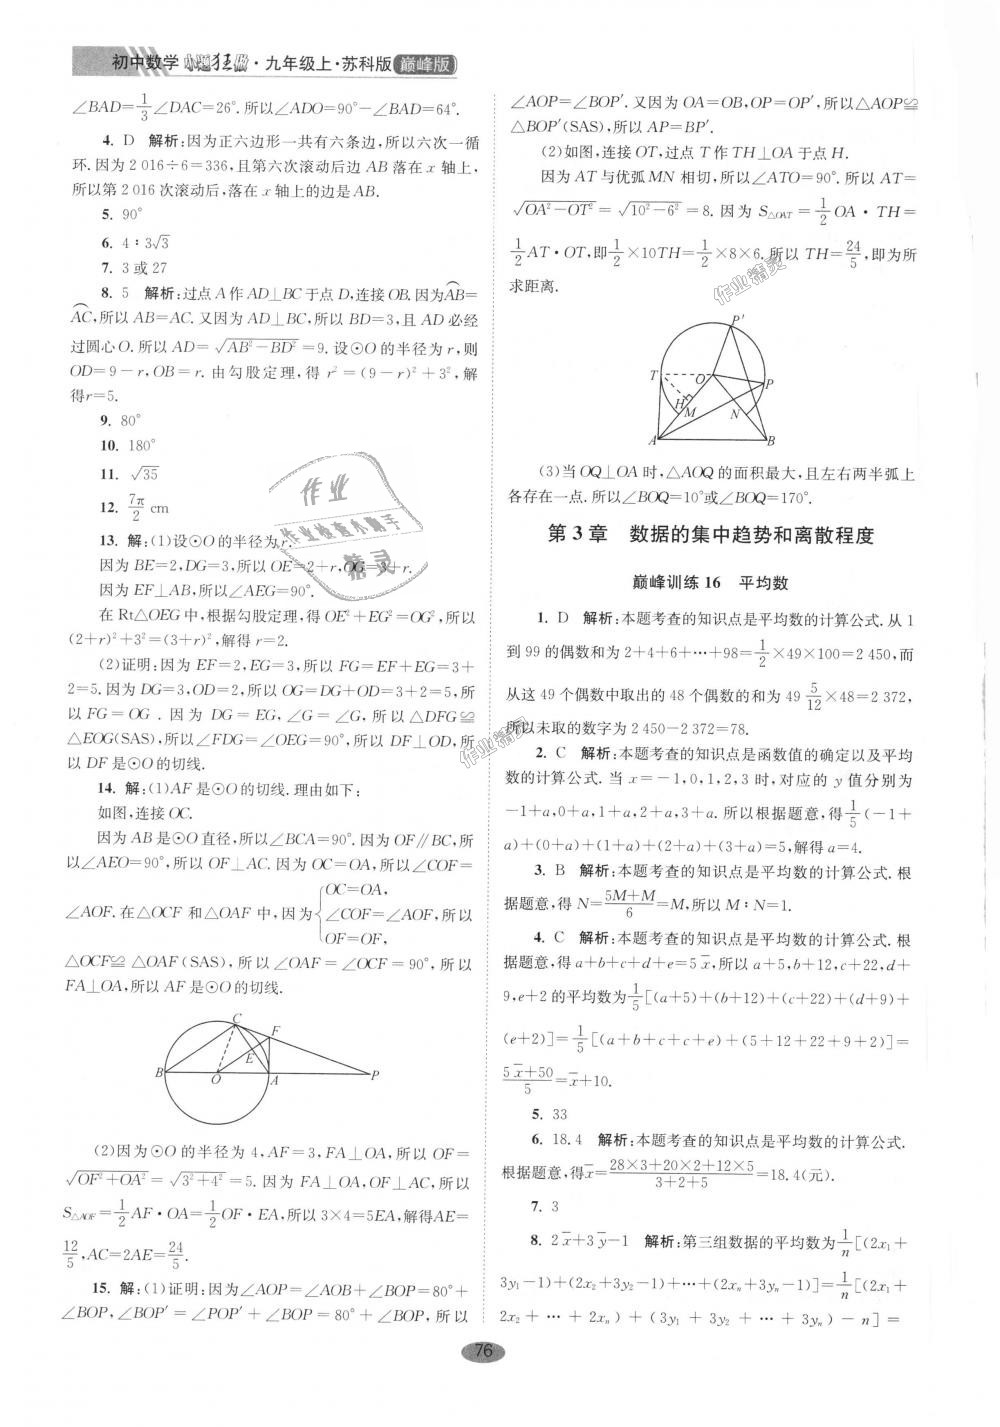 初中数学 小题狂做·九年级上·苏科版 巅峰版
∠BAD=1/3∠DAC=26°.所以∠ADO=90°-∠BAD=64°.
4. D 解析:因为正六边形一共有六条边,所以六次一循
环.因为2 016÷6=336,且第六次滚动后边AB落在x轴上,
所以第2 016次滚动后,落在x轴上的边是AB.
5. 90°
6. 4∶3√3
7. 3或27
8. 5 解析:过点A作AD⊥BC于点D,连接OB.因为⌒AB=
⌒AC,所以AB=AC.又因为AD⊥BC,所以BD=3,且AD必经
过圆心O.所以AD=√(AB²-BD²)=9.设⊙O的半径为r,则
OD=9-r,OB=r.由勾股定理,得r²=(9-r)²+3²,解
得r=5.
9. 80°
10. 180°
11. √35
12. 7π/2 cm
13. 解:(1)设⊙O的半径为r.
因为BE=2,DG=3,所以OE=2+r,OG=3+r.
因为EF⊥AB,所以∠AEG=90°.
在Rt△OEG中,根据勾股定理,得OE²+EG²=OG²,所以
(2+r)²+3²=(3+r)²,解得r=2.
(2)证明:因为EF=2,EG=3,所以FG=EF+EG=3+
2=5.因为DG=3,OD=2,所以OG=DG+OD=3+2=5,所
以FG=OG.因为DG=EG,∠G=∠G,所以△DFG≌
△EOG(SAS),所以∠FDG=∠OEG=90°,所以DF⊥OD,所
以DF是⊙O的切线.
14. 解:(1)AF是⊙O的切线.理由如下:
如图,连接OC.
因为AB是⊙O直径,所以∠BCA=90°.因为OF∥BC,所
以∠AEO=90°,所以OF⊥AC.因为OC=OA,所以∠COF=
∠AOF.在△OCF和△OAF中,因为{OC=OA, ∠COF=∠AOF, OF=OF, 所以
△OCF≌△OAF(SAS),所以∠OAF=∠OCF=90°,所以
FA⊥OA,所以AF是⊙O的切线.
C F E B O A P
(2)因为⊙O的半径为4,AF=3,FA⊥OA,所以OF=
√(OF²+OA²)=√(3²+4²)=5.因为FA⊥OA,OF⊥AC,所以
S△AOF=1/2AF·OA=1/2OF·EA,所以3×4=5EA,解得AE=
12/5,AC=2AE=24/5.
15. 解:(1)证明:因为∠AOP=∠AOB+∠BOP=80°+
∠BOP,∠BOP′=∠POP′+∠BOP=80°+∠BOP,所以
∠AOP=∠BOP′.又因为OA=OB,OP=OP′,所以△AOP≌
△BOP′(SAS),所以AP=BP′.
(2)如图,连接OT,过点T作TH⊥OA于点H.
因为AT与优弧MN相切,所以∠ATO=90°.所以AT=
√(OA²-OT²)=√(10²-6²)=8.因为S△OAT=1/2OA·TH=
1/2AT·OT,即1/2×10TH=1/2×8×6.所以TH=24/5,即为所
求距离.
P′ T O P H M N A B
(3)当OQ⊥OA时,△AOQ的面积最大,且左右两半弧上
各存在一点.所以∠BOQ=10°或∠BOQ=170°.
第3章 数据的集中趋势和离散程度
巅峰训练16 平均数
1. D 解析:本题考查的知识点是平均数的计算公式.从1
到99的偶数和为2+4+6+…+98=1/2×49×100=2 450,而
从这49个偶数中取出的48个偶数的和为49 5/12×48=2 372,
所以未取的数字为2 450-2 372=78.
2. C 解析:本题考查的知识点是函数值的确定以及平均
数的计算公式.当x=-1,0,1,2,3时,对应的y值分别为
-1+a,0+a,1+a,2+a,3+a.所以根据题意,得1/5(-1+
a)+(0+a)+(1+a)+(2+a)+(3+a)=5,解得a=4.
3. B 解析:本题考查的知识点是平均数的计算公式.根
据题意,得N=(5M+M)/6=M,所以M∶N=1.
4. C 解析:本题考查的知识点是平均数的计算公式.根
据题意,得a+b+c+d+e=5x̄,所以a+5,b+12,c+22,d+
9,e+2的平均数为1/5[(a+5)+(b+12)+(c+22)+(d+9)+
(e+2)]=1/5[(a+b+c+c+e)+(5+12+22+9+2)]=
(5x̄+50)/5=x̄+10.
5. 33
6. 18.4 解析:本题考查的知识点是平均数的计算公式.
根据题意,得x̄=(28×3+20×2+12×5)/(3+2+5)=18.4(元).
7. 3
8. 2x̄+3ȳ-1 解析:第三组数据的平均数为1/n[(2x₁+
3y₁-1)+(2x₂+3y₂-1)+…+(2xₙ+3yₙ-1)]=1/n[(2x₁+
2x₂+…+2xₙ)+(3y₁+3y₂+…+3yₙ)-n]=
76
作业
作业检查小助手
精灵
作业精灵
作业精灵